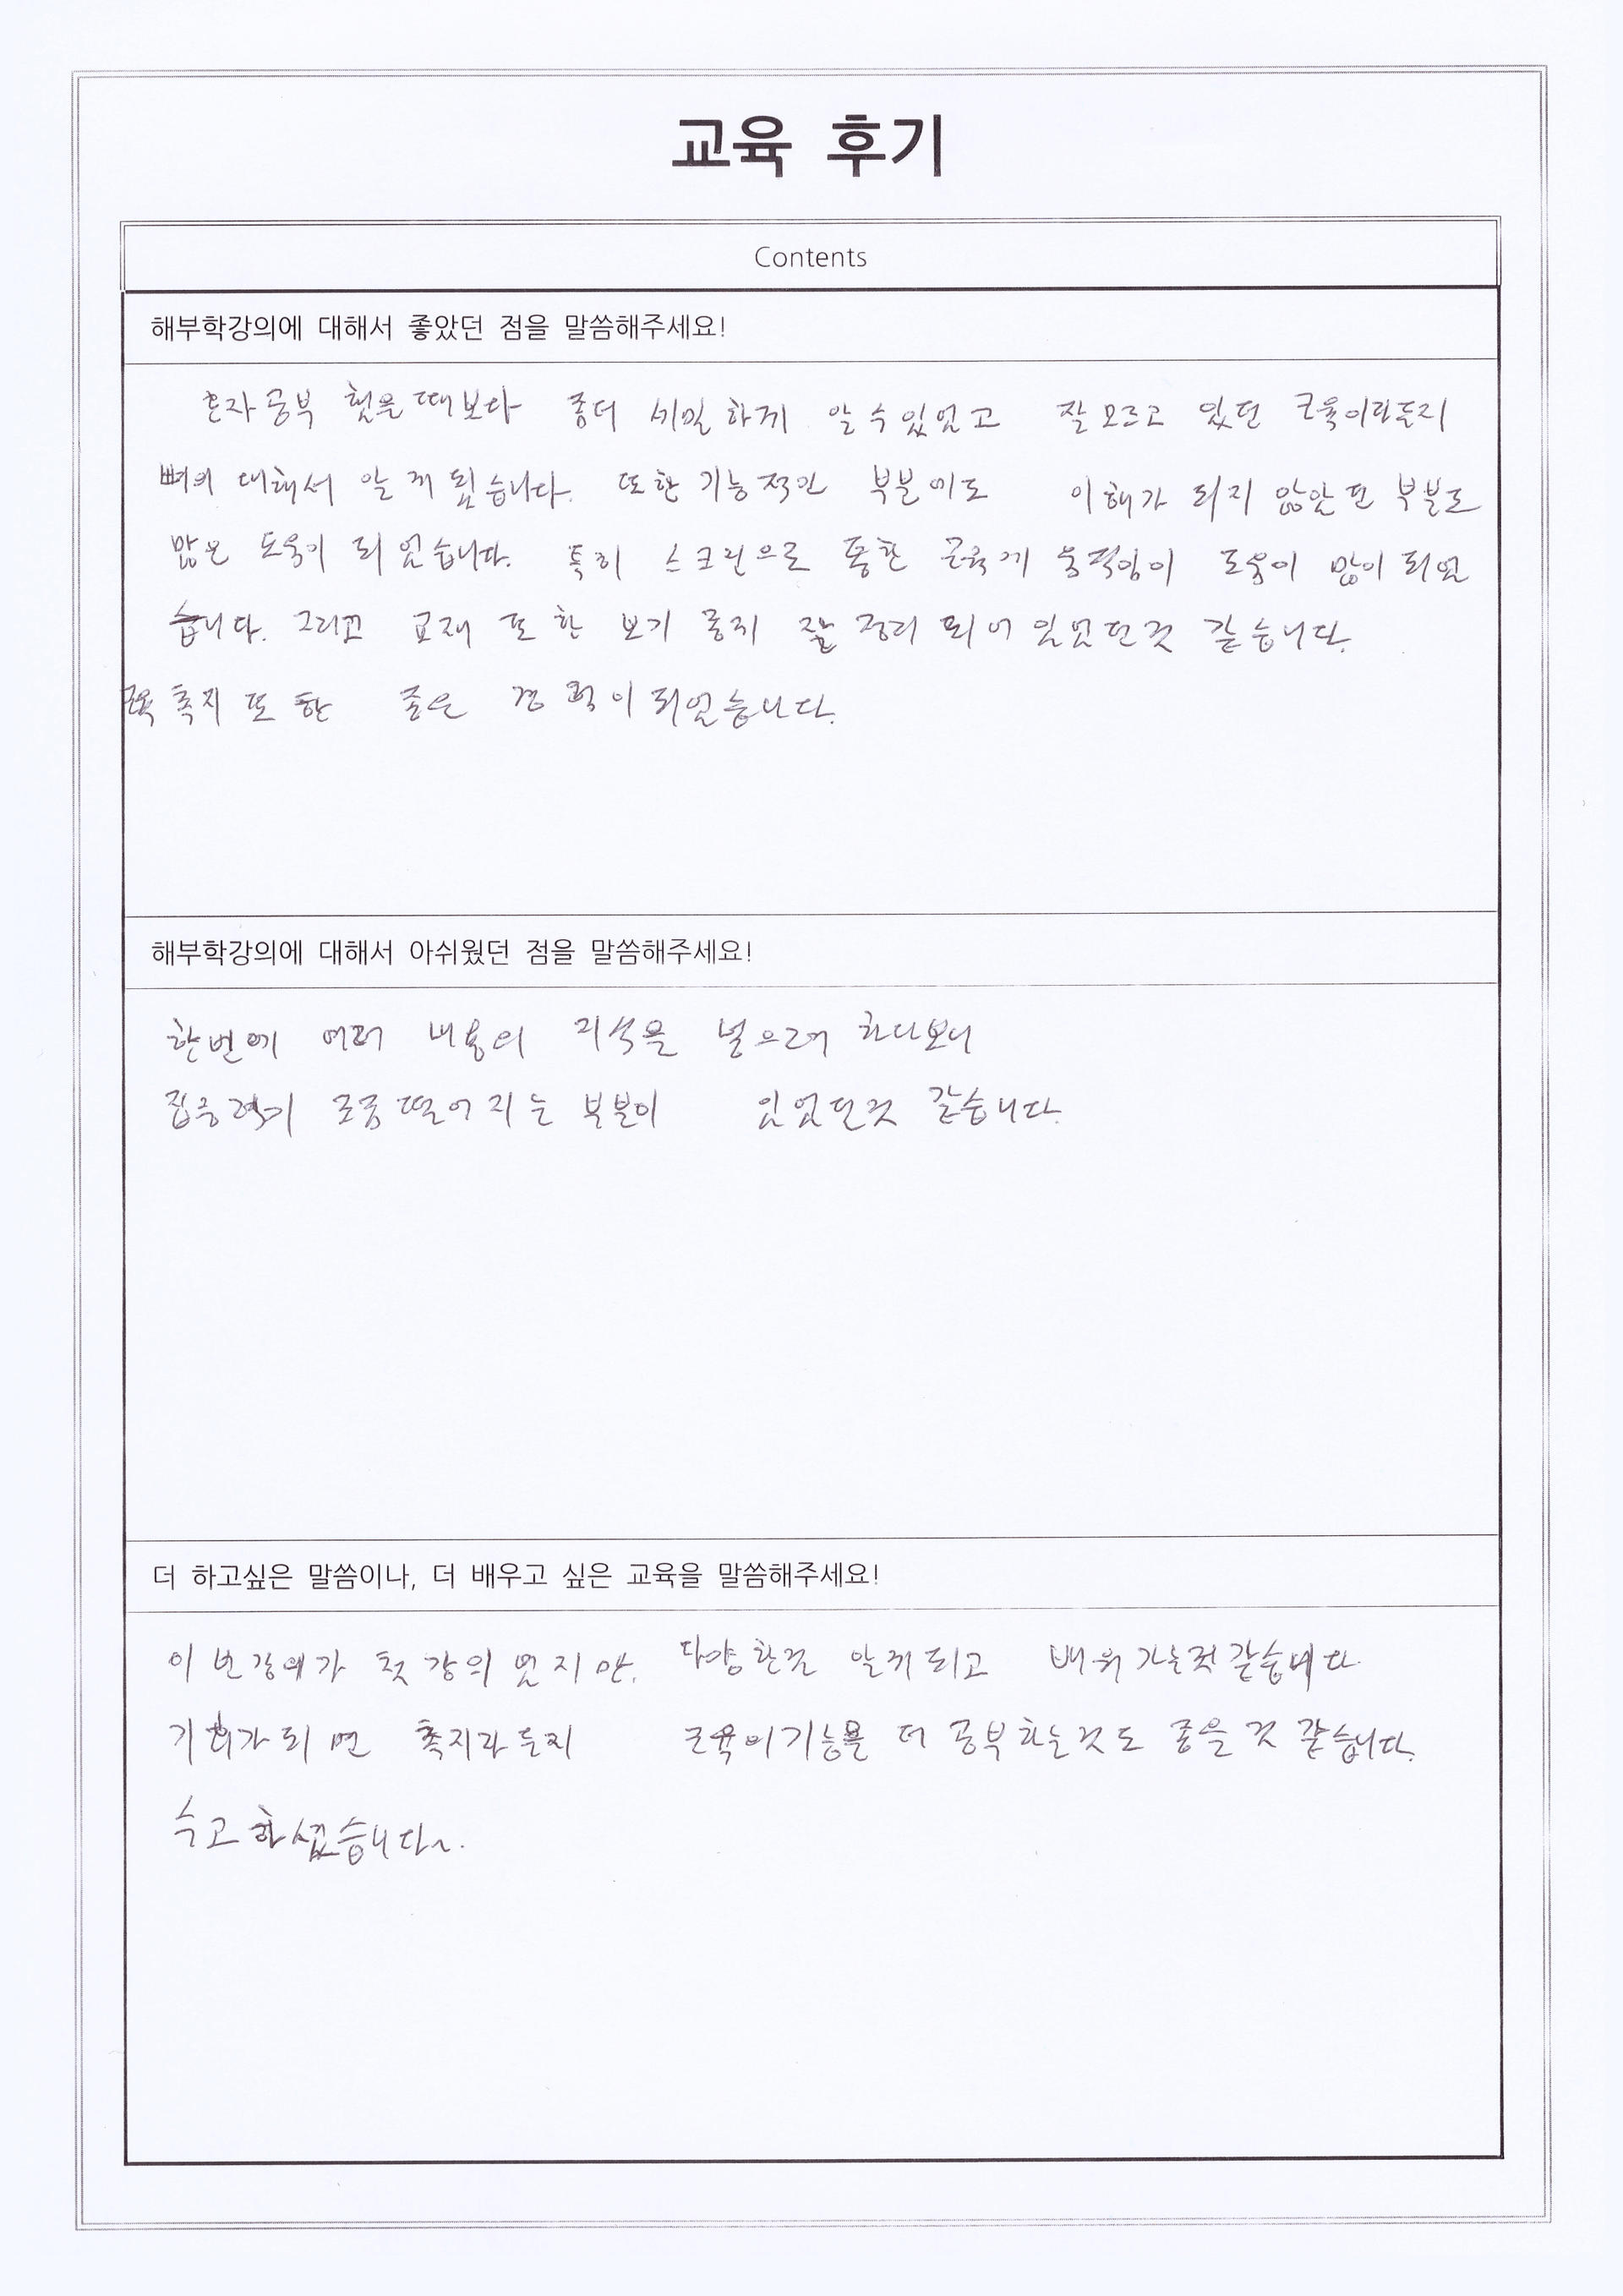 교육 후기
Contents
해부학강의에 대해서 좋았던 점을 말씀해주세요!
혼자공부 했을때보다 좀더 세밀하게 알수있었고 잘모르고 있던 근육이라든지
뼈에 대해서 알게 됬습니다. 또한 기능적인 부분에도 이해가 되지 않았던 부분도
많은 도움이 되었습니다. 특히 스크린으로 통한 근육에 움직임이 도움이 많이 되었
습니다. 그리고 교재 또한 보기 좋게 잘 정리 되어 있었던것 같습니다.
근육 촉지 또한 좋은 경험이 되었습니다.
해부학강의에 대해서 아쉬웠던 점을 말씀해주세요!
한번에 여러 내용의 지식을 넣으려 하다보니
집중력이 조금 떨어지는 부분이 있었던것 같습니다.
더 하고싶은 말씀이나, 더 배우고 싶은 교육을 말씀해주세요!
이번강의가 첫 강의 였지만, 다양한것 알게되고 배워가는것 같습니다.
기회가 되면 촉지라든지 근육의기능을 더 공부하는것도 좋을 것 같습니다.
수고하셨습니다~.